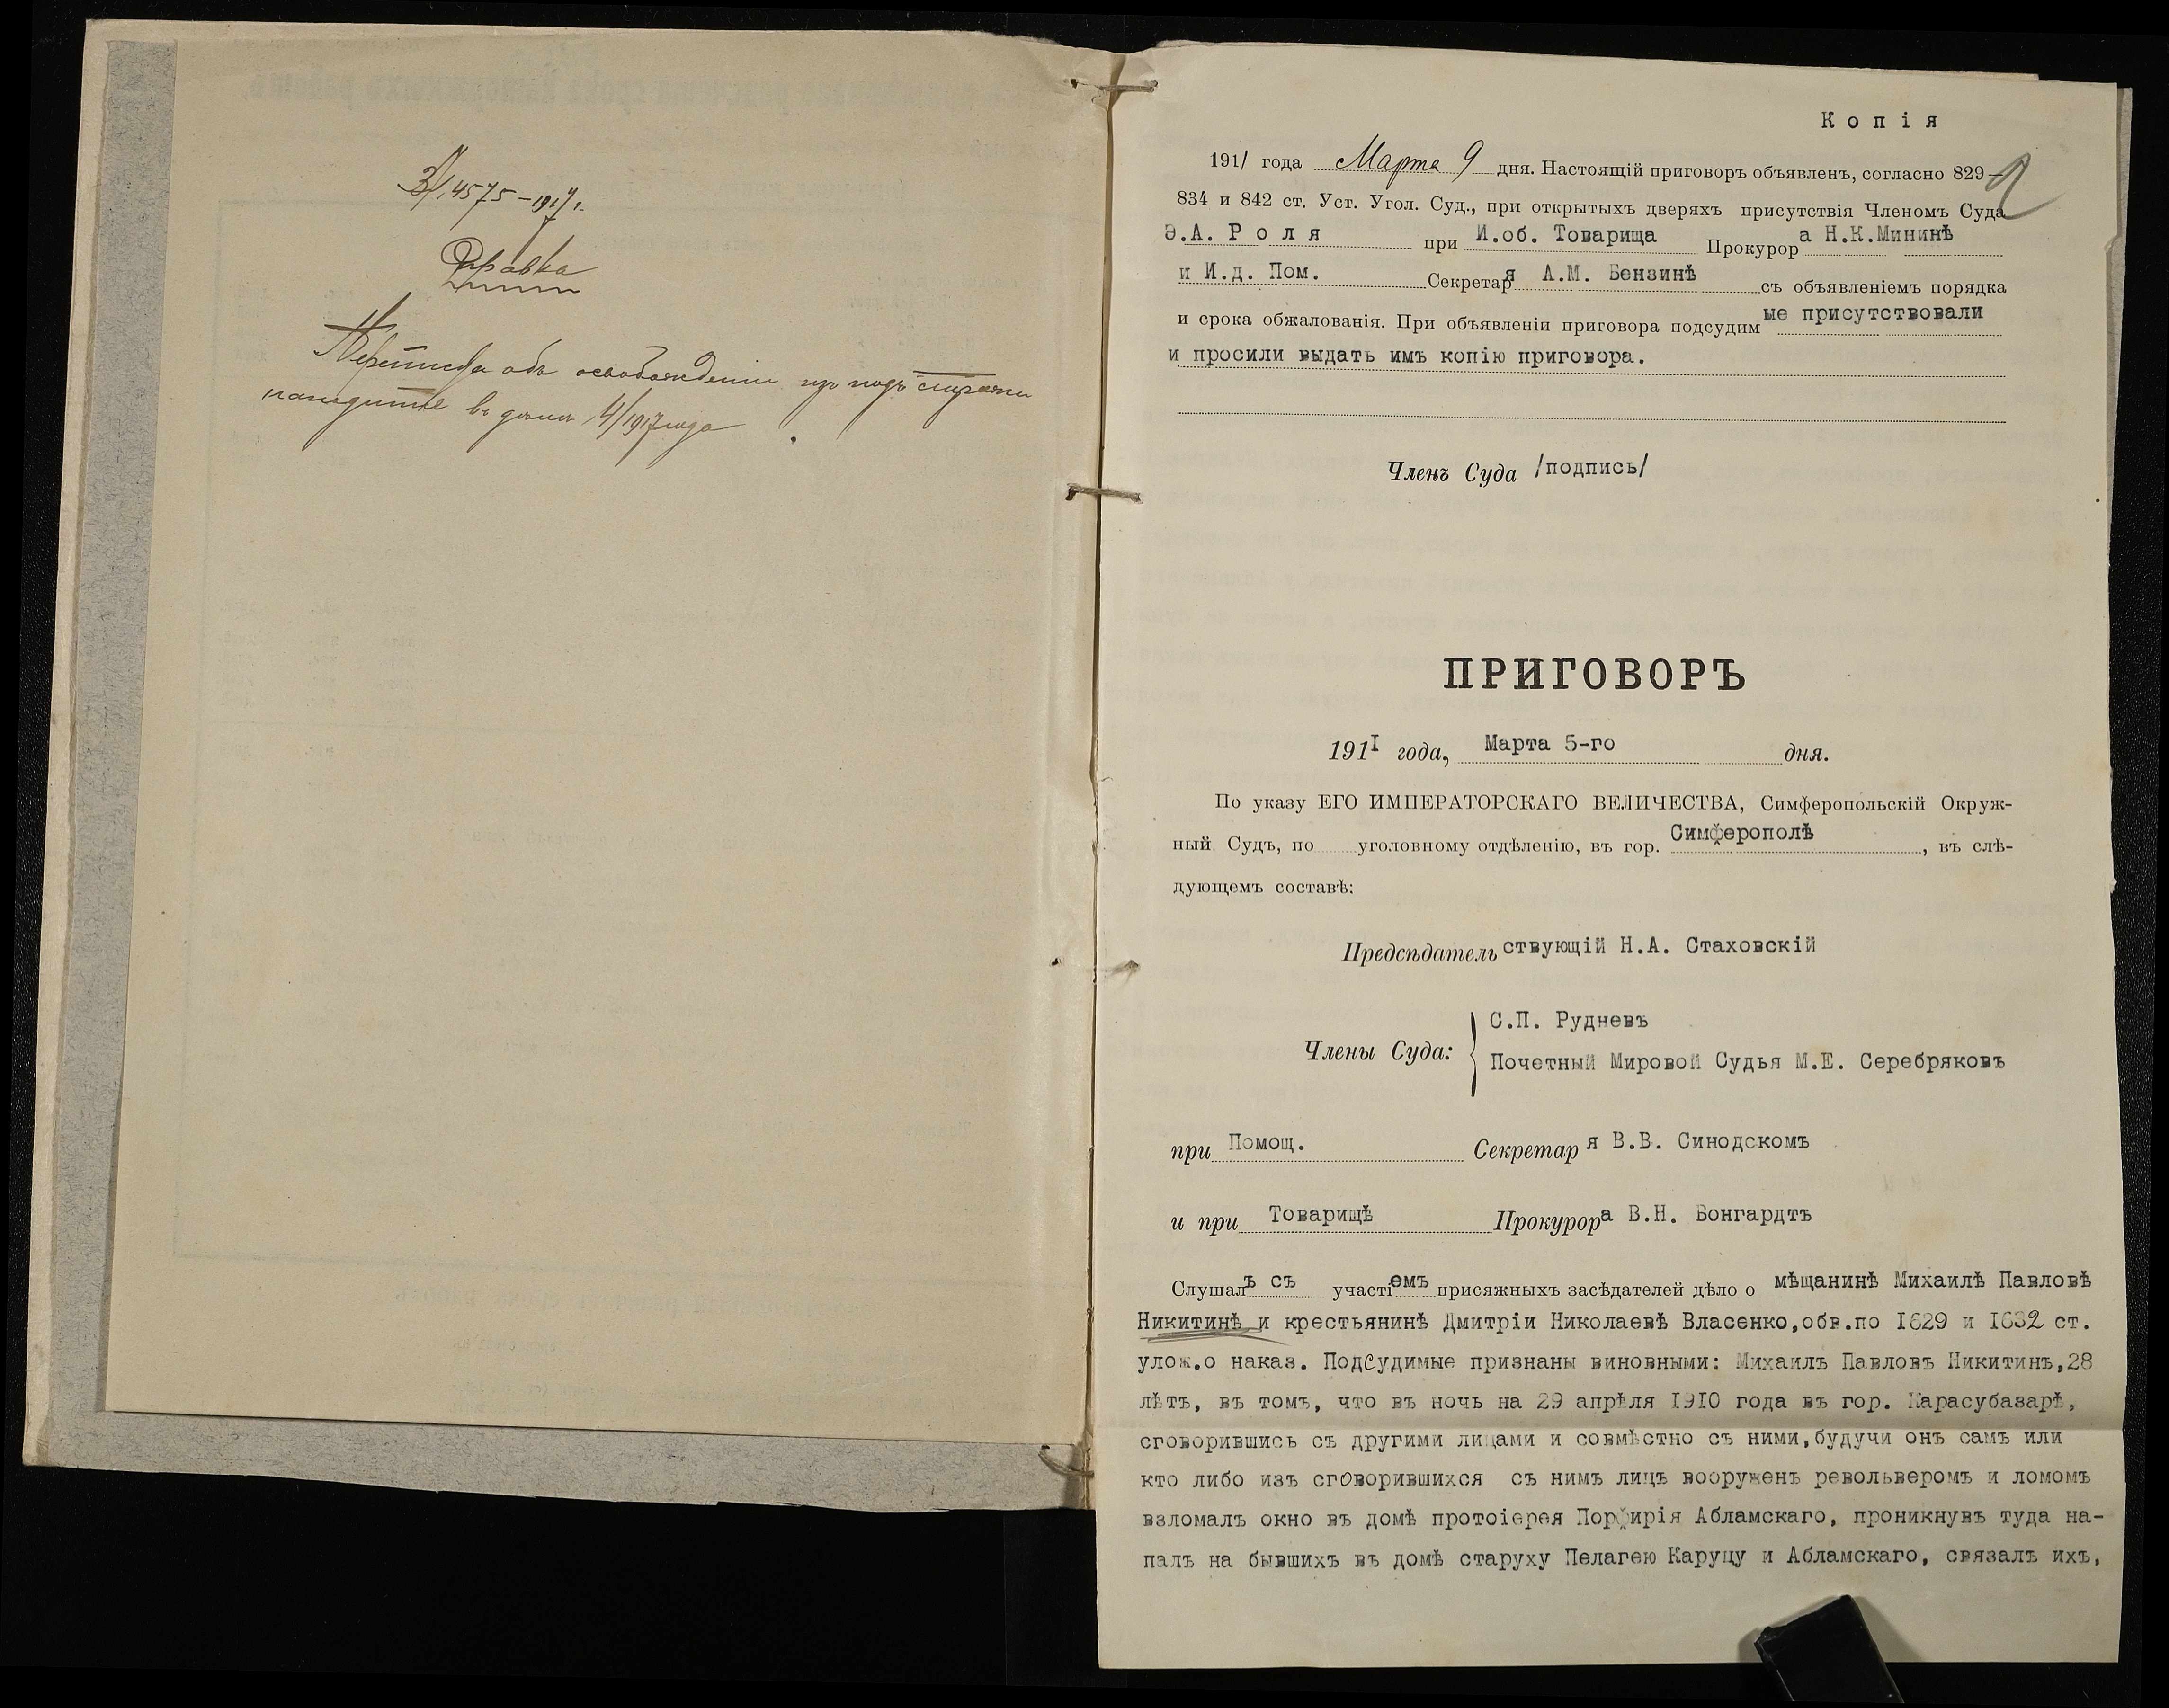 4575 – 1917 г.
Справка
Переписка объ освобожденіи изъ подъ стражи
находится въ 4/1917 года
Копія
1911 года Марта 9 дня. Настоящій приговоръ объявленъ, согласно 829—
834 и 842 ст. Уст. Угол. Суд., при открытыхъ дверяхъ присутствія Членомъ Суда
Э.А. Роля при И.об. Товарища Прокурора Н.К.Мининѣ
и И.д. Пом. Секретаря А.М. Бензинѣ съ объявленіемъ порядка
и срока обжалованія. При объявленіи приговора подсудимые присутствовали
и просили выдать имъ копію приговора.
Членъ Суда /подпись/
ПРИГОВОРЪ
1911 года, Марта 5-го дня.
По указу ЕГО ИМПЕРАТОРСКАГО ВЕЛИЧЕСТВА, Симферопольскій Окруж-
ный Судъ, по уголовному отдѣленію, въ гор. Симферополѣ, въ слѣ-
дующемъ составѣ:
Предсѣдательствующій Н.А. Стаховскій
Члены Суда:
С.П. Рудневъ
Почетный Мировой Судья М.Е. Серебряковъ
при Помощ. Секретаря В.В. Синодскомъ
и при Товарищѣ Прокурора В.Н. Бонгардтъ
Слушалъ съ участіемъ присяжныхъ засѣдателей дѣло о мѣщанинѣ Михаилѣ Павловѣ
Никитинѣ и крестьянинѣ Дмитріи Николаевѣ Власенко,обв.по 1629 и 1632 ст.
улож.о наказ. Подсудимые признаны виновными: Михаилъ Павловъ Никитинъ,28
лѣтъ, въ томъ, что въ ночь на 29 апрѣля 1910 года въ гор. Карасубазарѣ,
сговорившись съ другими лицами и совмѣстно съ ними,будучи онъ самъ или
кто либо изъ сговорившихся съ нимъ лицъ вооруженъ револьверомъ и ломомъ
взломалъ окно въ домѣ протоіерея Порфирія Абламскаго, проникнувъ туда на-
палъ на бывшихъ въ домѣ старуху Пелагею Каруцу и Абламскаго, связалъ ихъ,